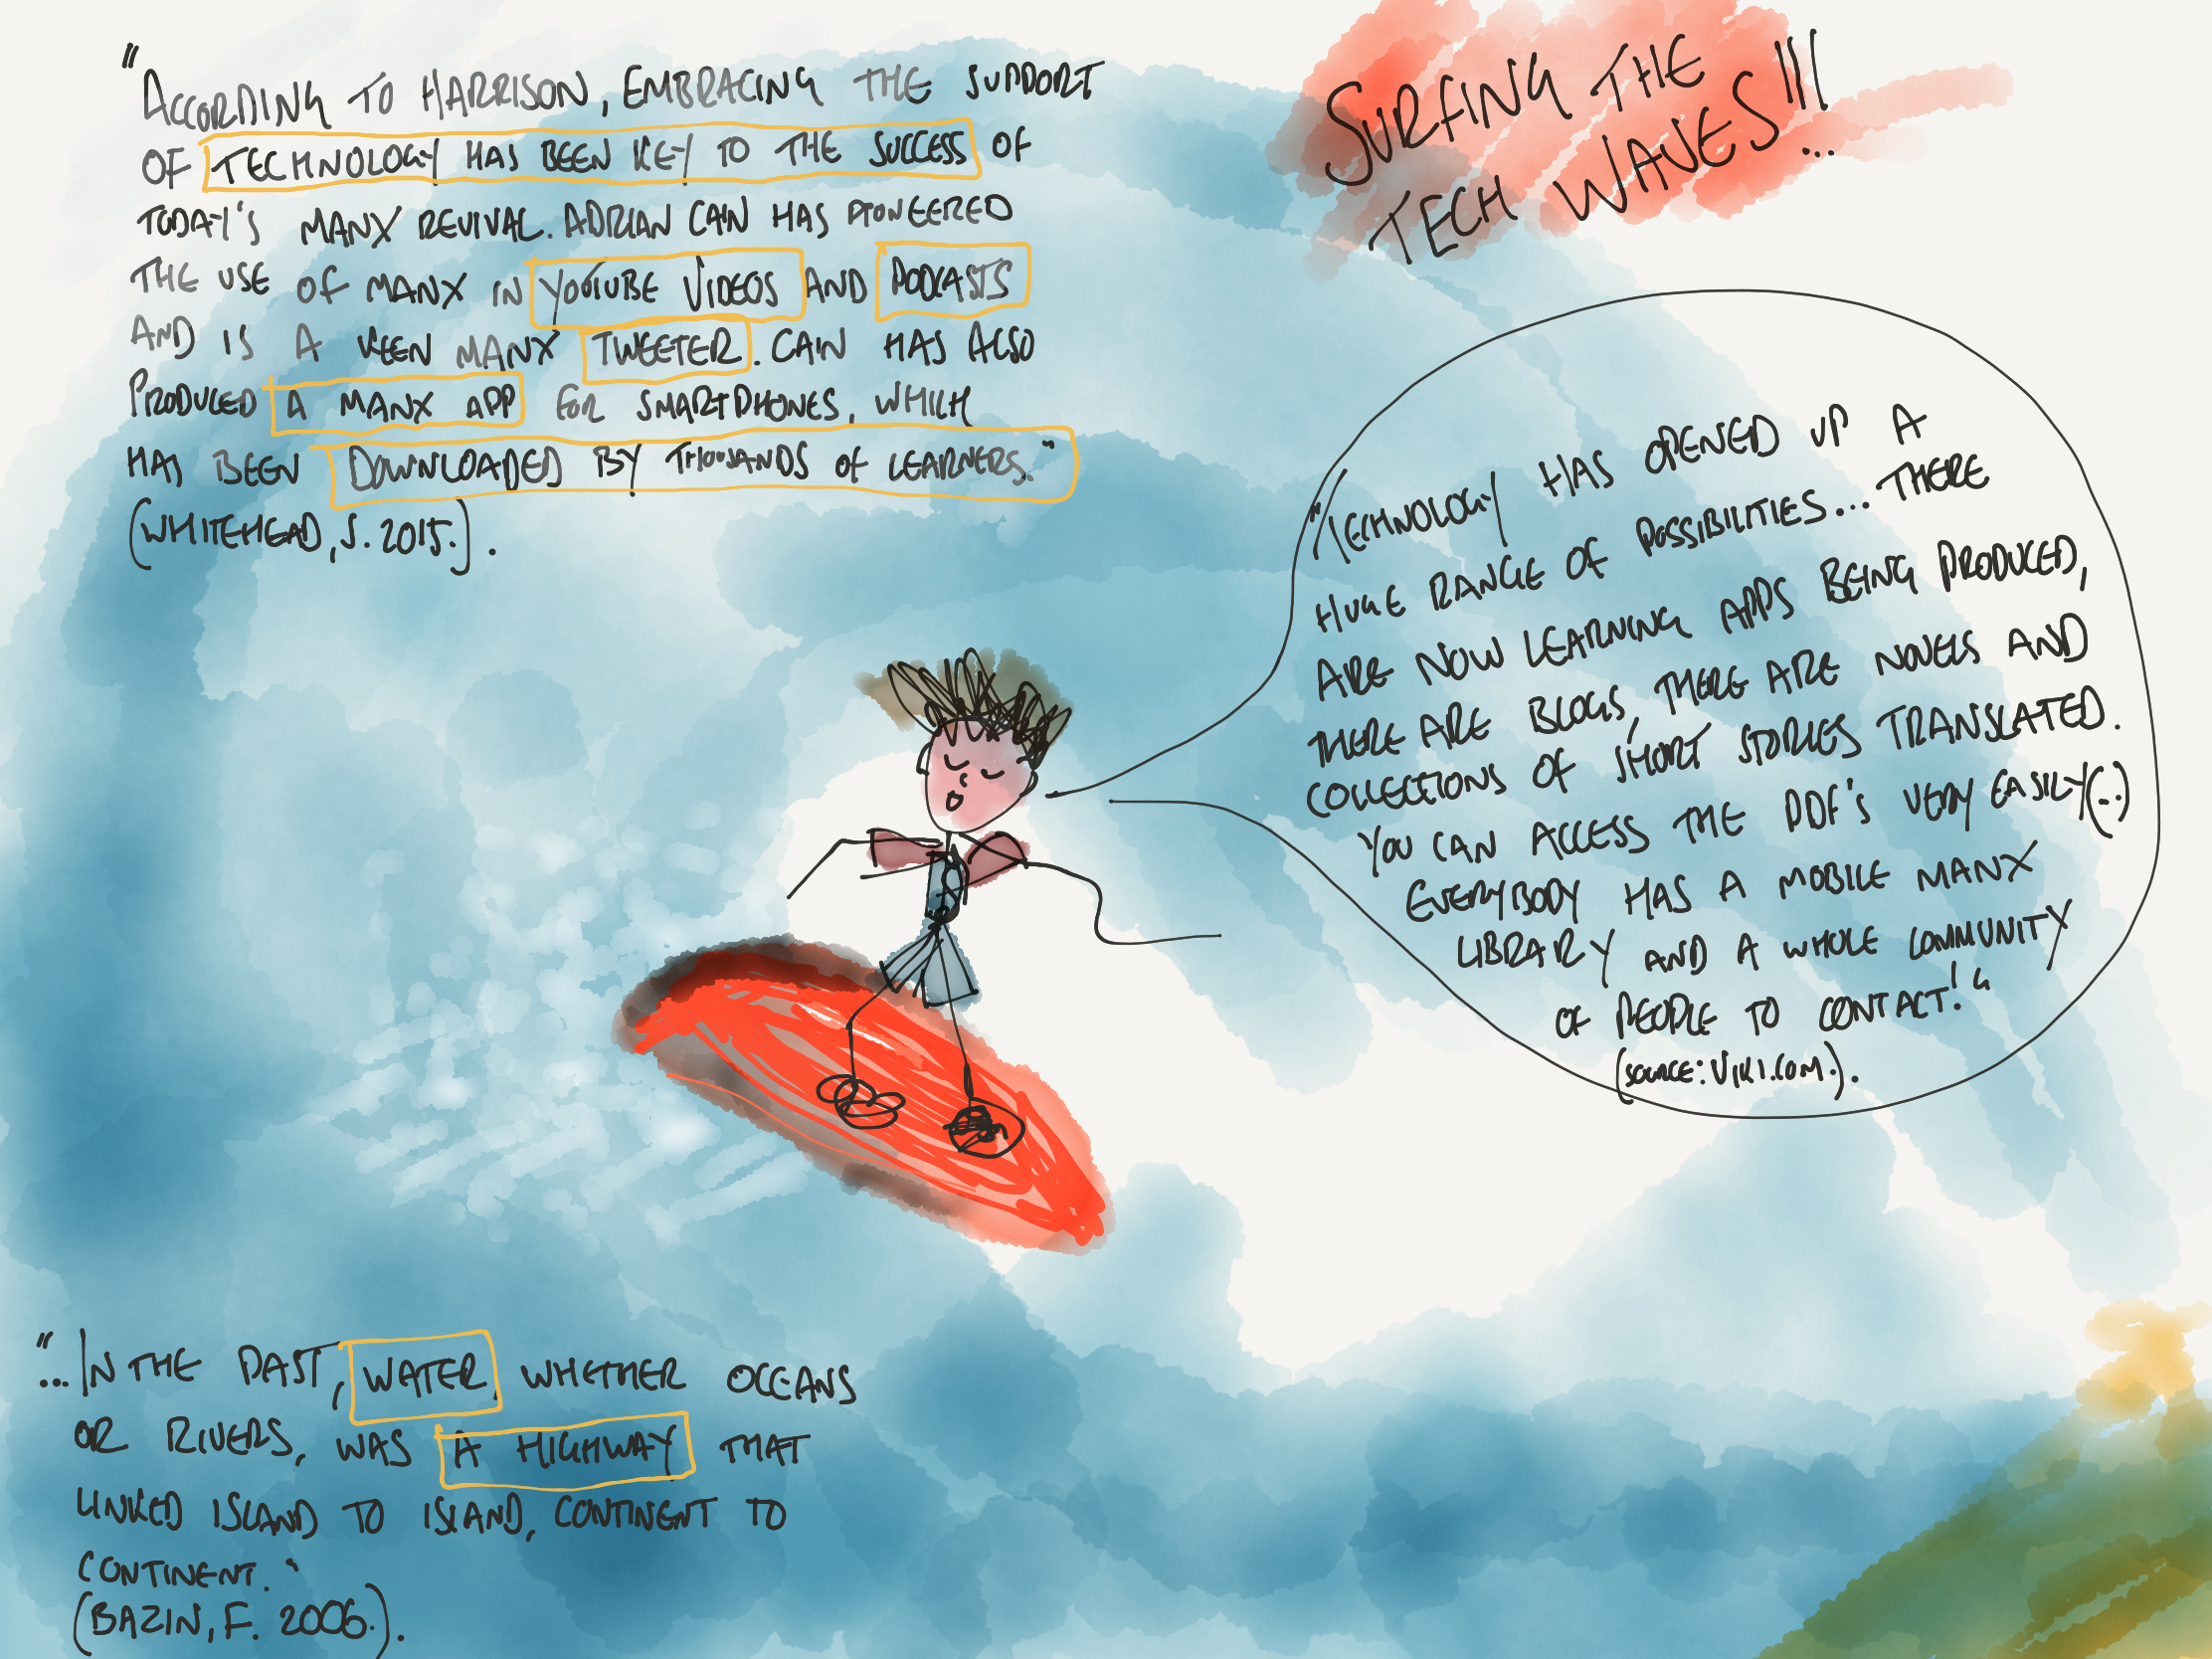 "ACCORDING TO HARRISON, EMBRACING THE SUPPORT
OF TECHNOLOGY HAS BEEN KEY TO THE SUCCESS OF
TODAY'S MANX REVIVAL. ADRIAN CAIN HAS PIONEERED
THE USE OF MANX IN YOUTUBE VIDEOS AND PODCASTS
AND IS A KEEN MANX TWEETER. CAIN HAS ALSO
PRODUCED A MANX APP FOR SMARTPHONES, WHICH
HAS BEEN DOWNLOADED BY THOUSANDS OF LEARNERS."
(WHITEHEAD, S. 2015.).
SURFING THE
TECH WAVES!!!...
"TECHNOLOGY HAS OPENED UP A
HUGE RANGE OF POSSIBILITIES... THERE
ARE NOW LEARNING APPS BEING PRODUCED,
THERE ARE BLOGS, THERE ARE NOVELS AND
COLLECTIONS OF SHORT STORIES TRANSLATED.
YOU CAN ACCESS THE PDF'S VERY EASILY(...)
EVERYBODY HAS A MOBILE MANX
LIBRARY AND A WHOLE COMMUNITY
OF PEOPLE TO CONTACT!"
(SOURCE: VIKI.COM.).
"...IN THE PAST, WATER, WHETHER OCEANS
OR RIVERS, WAS A HIGHWAY THAT
LINKED ISLAND TO ISLAND, CONTINENT TO
CONTINENT."
(BAZIN, F. 2006.).